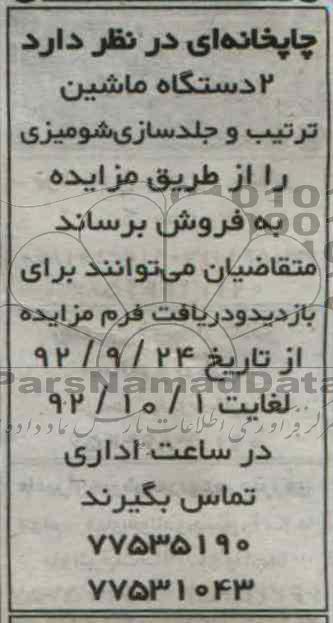 چاپخانه‌ای در نظر دارد
۲دستگاه ماشین
ترتیب و جلدسازی‌شومیزی
را از طریق مزایده
به فروش برساند
متقاضیان می‌توانند برای
بازدیدودریافت فرم مزایده
از تاریخ ۲۴ / ۹ / ۹۲
ParsNamadData
لغایت ۱ / ۱۰ / ۹۲
مرکز فرآوری اطلاعات پارس نماد داده
در ساعت اداری
تماس بگیرند
۷۷۵۳۵۱۹۰
۷۷۵۳۱۰۴۳